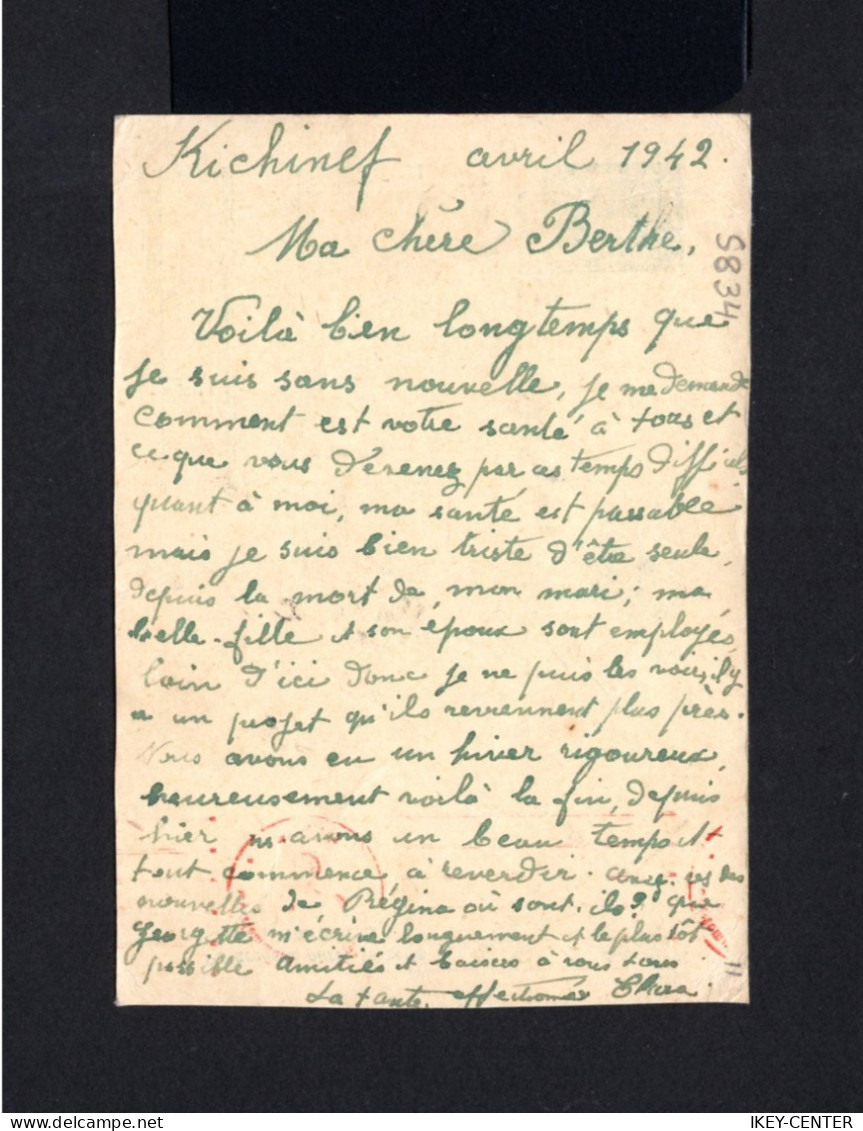 Kichinef avril 1942.
Ma chère Berthe,
5834
Voilà bien longtemps que
je suis sans nouvelle, je me demande
comment est votre santé à tous et
ce que vous devenez par ces temps difficils
quant à moi, ma santé est passable
mais je suis bien triste d'être seule,
depuis la mort de mon mari; ma
belle-fille et son époux sont employés
loin d'ici donc je ne puis les voir, il y
a un projet qu'ils reviennent plus près.
Nous avons eu un hiver rigoureux,
heureusement voilà la fin, depuis
hier ns avons un beau temps et
tout commence à reverdir. avez-vs des
nouvelles de Régina où sont-ils? que
Georgette m'écrive longuement et le plus tôt
possible amitiés et baisers à vous tous
La tante affectionée
11
IKEY-CENTER